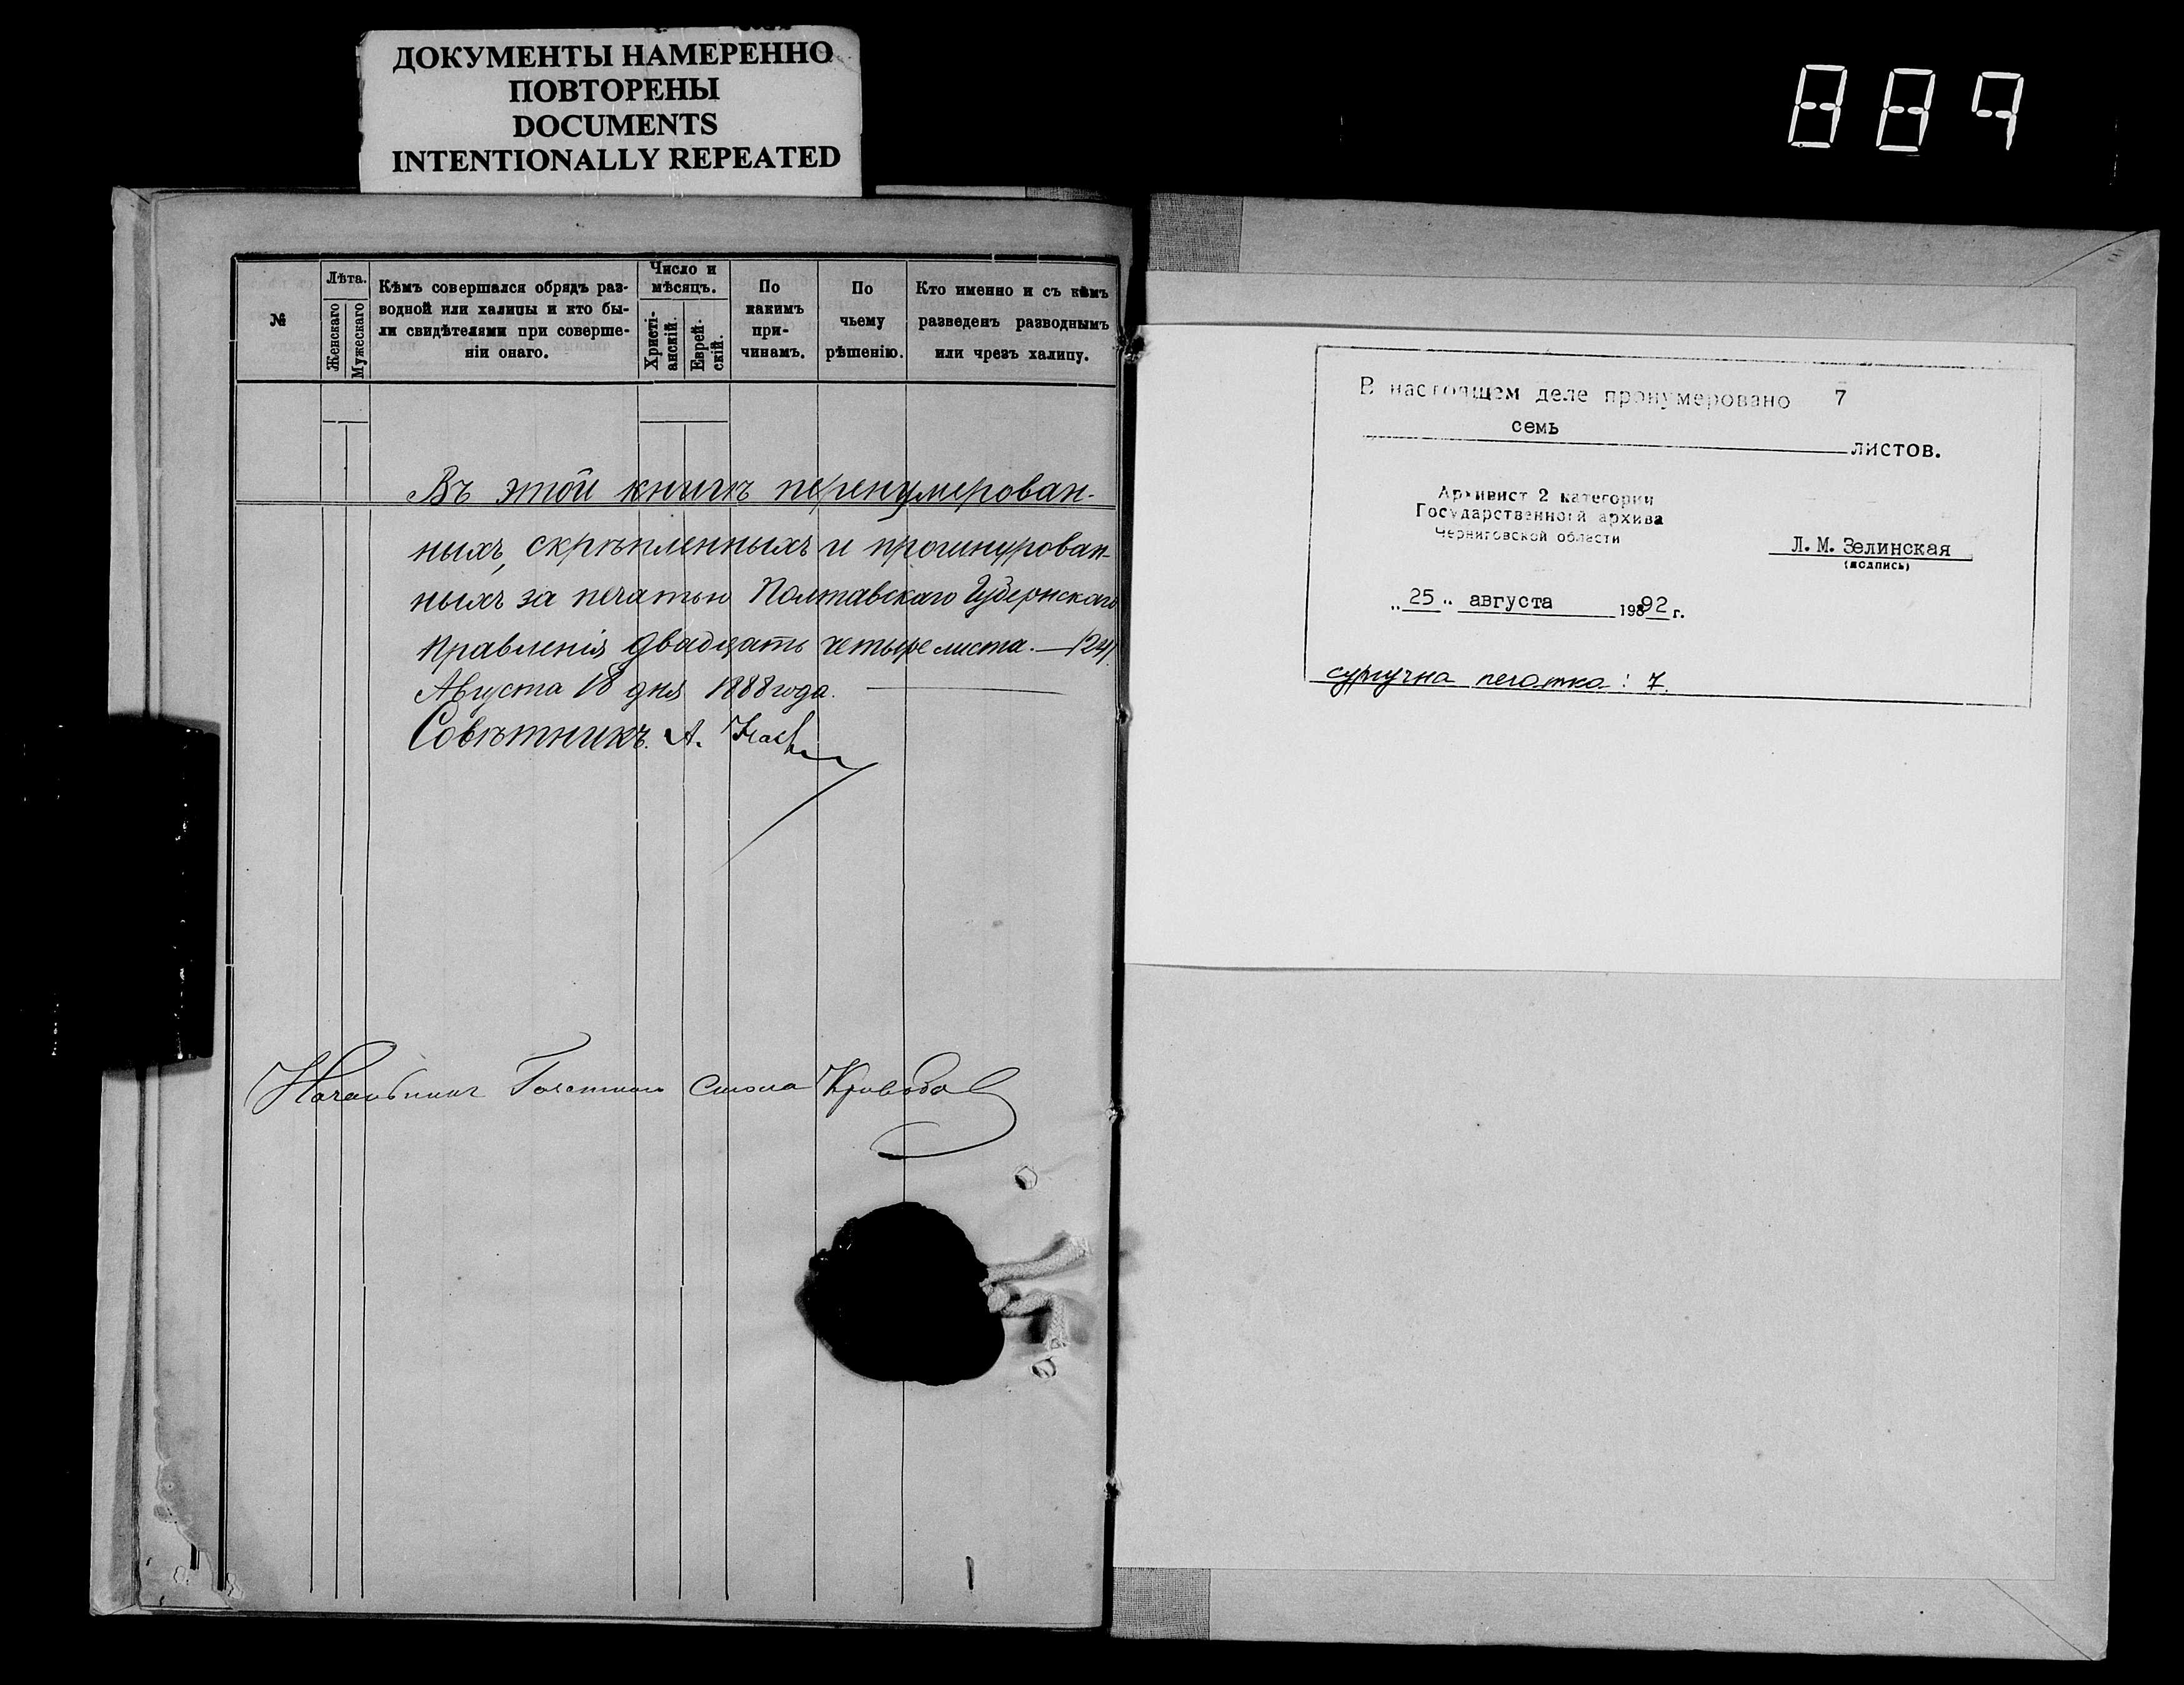 ДОКУМЕНТЫ НАМЕРЕННО
ПОВТОРЕНЫ
DOCUMENTS
INTENTIONALLY REPEATED
889
№
Лѣта.
Женскаго
Мужескаго
Кѣмъ совершался обрядъ раз-
водной или халицы и кто бы-
ли свидѣтелями при соверше-
ніи онаго.
Число и
мѣсяцъ.
Христі-
анскій.
Еврей-
скій.
По
какимъ
при-
чинамъ.
По
чьему
рѣшенію.
Кто именно и съ кѣмъ
разведенъ разводнымъ
или чрезъ халицу.
Въ этой книгѣ перенумерован-
ныхъ, скрѣпленныхъ и прошнурован-
ныхъ за печатью Полтавскаго Губернскаго
Правленія двадцать четыре листа. — /24/.
Августа 18 дня 1888 года.
Совѣтникъ. А.
Стола
В настоящем деле пронумеровано 7
семь
листов.
Архивист 2 категории
Государственного архива
Черниговской области
Л.М.Зелинская
(подпись)
„25" августа 19892 г.
сургучна печатка: 7.